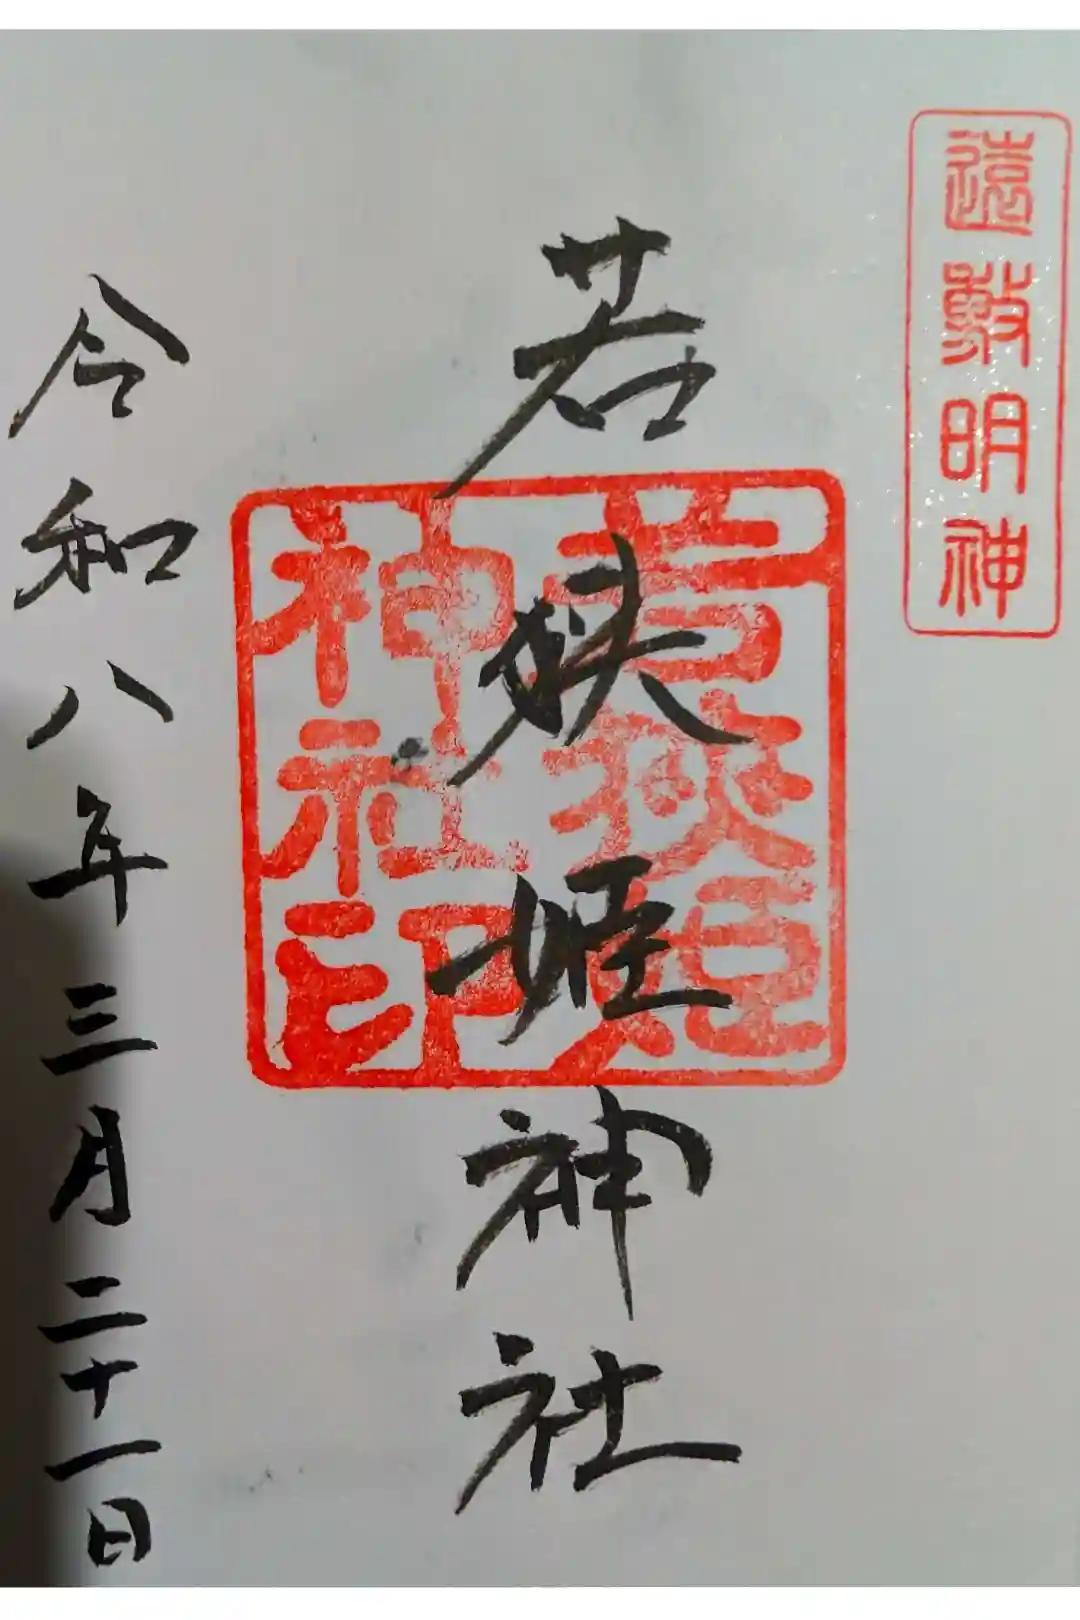 遠敷明神
若狭姫神社
若狭姫
神社印
令和八年三月二十一日